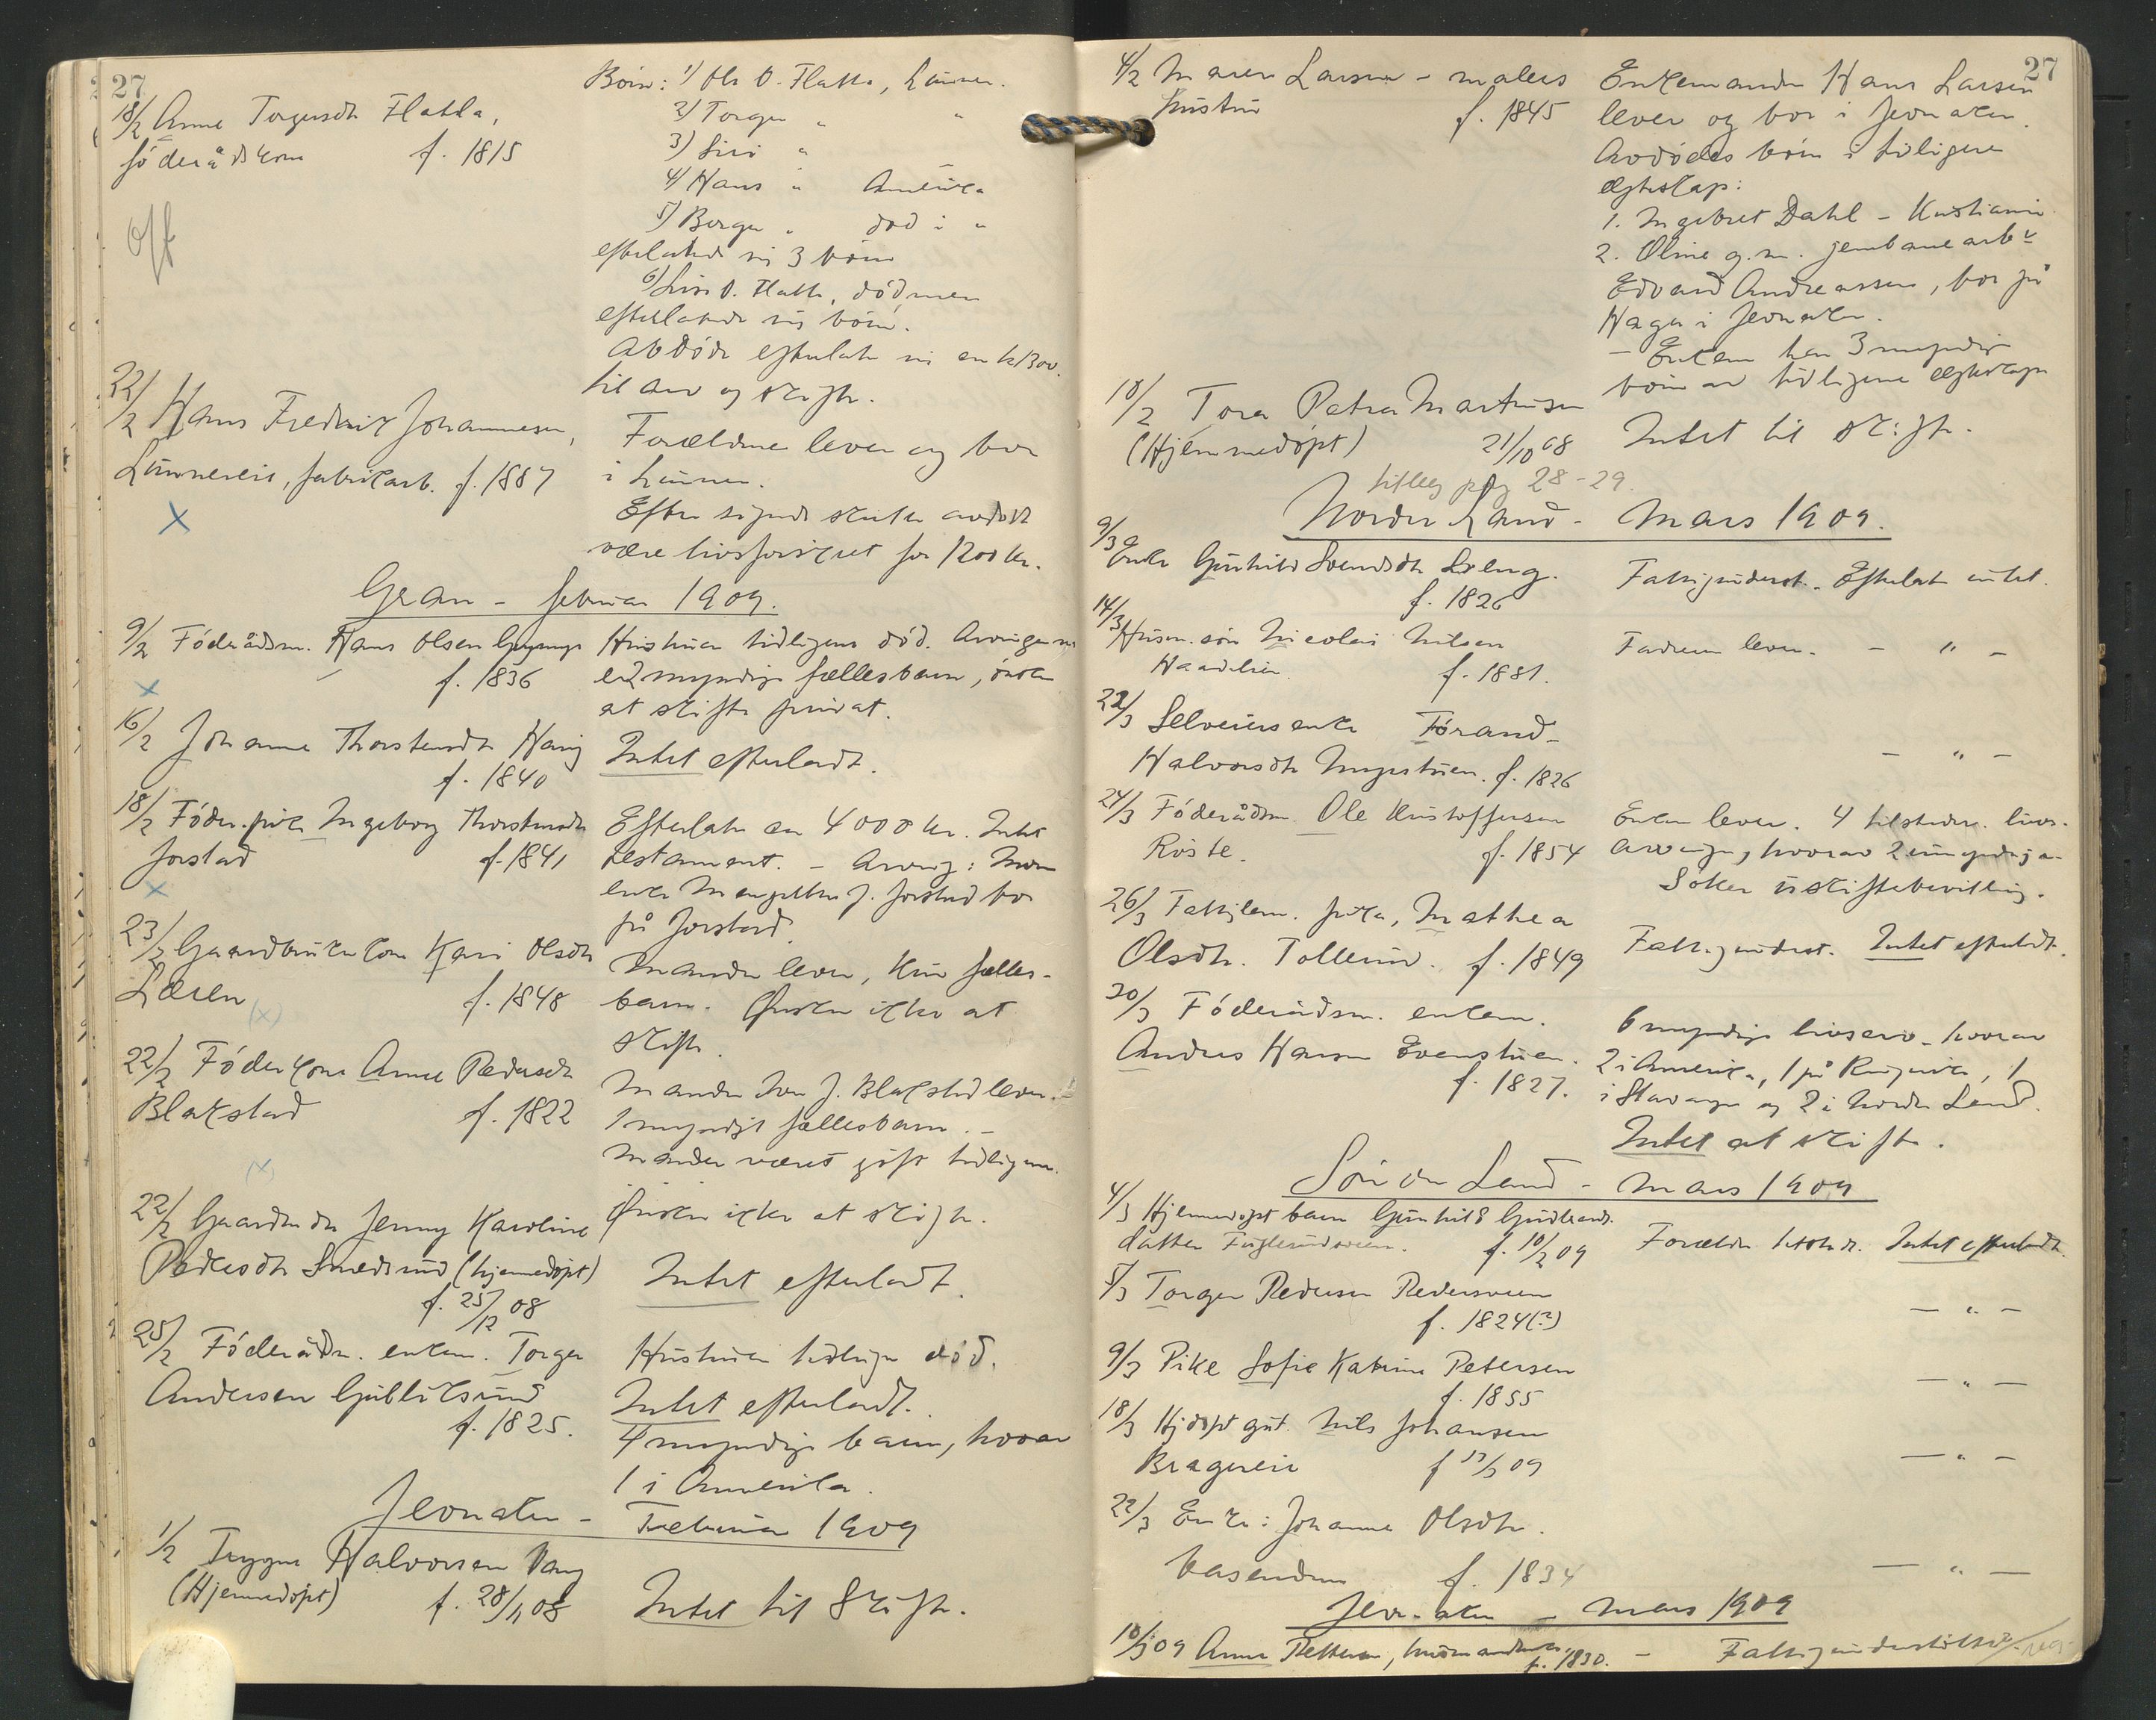 27
18/2 Anne Torgersdtr Flatla,
föderådskone f. 1815
Off
Börn: 1) Ole O. Flatla, Lunner.
2) Torger " "
3) Siri "
4) Hans " Amerika
5) Borger " död i "
efterlatende sig 3 börn
6) Lise O. Flatla, död men
efterlatende sig börn.
Avdöde efterlater sig en kr 1300.
til arv og skifte.
22/2 Hans Fredrik Johannesen,
Lunnereie, fabrikarb. f. 1887
x
Forældrene lever og bor
i Lunner.
Efter sigende skulle avdöde
være livsforsikret for 1200 kr.
Gran - februar 1909.
9/2 Föderådsm. Hans Olsen
f. 1836
x
Hustruen tidligere död. Arvingerne
er 2 myndige fællesbarn, önsker
at skifte privat.
16/2 Johanne Thorstensdtr Haug
f. 1840
Intet efterladt.
18/2 Föder.pike Ingeborg Thorstensdtr
Jorstad f. 1841
x
Efterlater ca 4000 kr. Intet
testament. - Arving: Mor
enke J. Jorstad bor
på Jorstad.
23/2 Gaardbrukerkone Kari Olsdtr
Læren f. 1848
(x)
Manden lever, kun fælles-
barn. Önsker ikke at
skifte.
22/2 Föderkone Anne Pedersdtr
Blakstad f. 1822
(x)
Manden Iver J. Blakstad lever.
1 myndigt fællesbarn. -
Manden været gift tidligere.
Önsker ikke at skifte.
22/2 Jenny Karoline
Pedersdtr Smedsrud (hjemmedöpt)
f. 25/12 08
Intet efterladt.
25/2 Föderådsm. enkem. Torger
Andersen Gulliksrud
f. 1825.
Hustruen tidligere död.
Intet efterladt.
4 myndige barn, hvorav
1 i Amerika.
Jevnaker - Februar 1909
1/2 Trygve Halvorsen Vang
(Hjemmedöpt) f. 28/11 08
Intet til Skifte.
27
4/2 Maren Larsen - malers
hustru f. 1845
Enkemanden Hans Larsen
lever og bor i Jevnaker.
Avdödes börn i tidligere
ægteskap:
1. Ingebret Dahl - Kristiania
2. Oline g.m. jernbanearbr
Edvard Andreassen, bor på
Haga i Jevnaker.
- Enkem. har 3 myndige
börn av tidligere ægteskap
10/2 Tora Petra Martinsen
(Hjemmedöpt) 21/10 08
Intet til skifte.
tillæg pag 28-29.
Nordre Land - Mars 1909.
9/3 Enke Gunhild Svendsdtr Sveng.
f. 1826
Fattigunderst. Efterlat intet.
14/3 Husm. sön Nicolai Nilsen
Haadelien. f. 1881.
Faderen lever. - " -
22/3 Selveiersenke Törand
Halvorsdtr Myrstuen. f. 1826
- " -
24/3 Föderådsm. Ole Kristoffersen
Röste. f. 1854
Enken lever. 4 tilstedev. livs-
arvinger, hvorav 2 umyndige.
Söker uskiftebevilling.
26/3 Fattiglem. pike, Mathea
Olsdtr. Tollerud. f. 1849
Fattigunderst. Intet efterladt.
30/3 Föderådsm. enkem.
Anders Hansen Evenstuen.
f. 1827.
6 myndige livsarv. hvorav
2 i Amerika, 1 på Ringerike, 1
i Stavanger og 2 i Nordre Land.
Intet at skifte.
Söndre Land - Mars 1909
4/3 Hjemmedöpt barn Gunhild Gudbrands-
datter Fuglerudsveen. f. 10/2 09
Forældre tilstede. Intet efterladt.
5/3 Torger Pedersen Pedersveen
f. 1824(?)
- " -
9/3 Pike Sofie Katrine Petersen
f. 1855
- " -
18/3 Hj.döpt gut. Nils Johansen
Bragereie f 17/3 09
- " -
22/3 Enke: Johanne Olsdtr.
Vasenden f. 1834
- " -
Jevnaker - Mars 1909
10/3 09 Anne Pettersen,
f. 1830. - Fattigunderstöttet